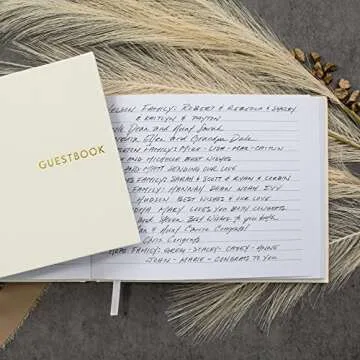 GUESTBOOK
NELSON FAMILY: ROBERT & REBECCA & SHIRLEY
& KAITLYN & PAYTON
Dean and Aunt Sarah
Ellen and Grandpa Dale
FAMILY: MIKE - LISA - MEA - CAITLIN
AND MICHELLE BEST WISHES
AND MATT SENDING OUR LOVE
FAMILY: SARAH & SCOTT & RYAN & CORBIN
FAMILY: HANNAH DEAN NOAH IVY
HUDSON BEST WISHES & OUR LOVE
MARY LOVES YOU BOTH CONGRATS
Best Wishes to you both
& Aunt Carrie Congrats!
Chris Congrats
FAMILY: GREG - STACEY - CASEY - ANNE
JOHN - MARIE - CONGRATS TO YOU